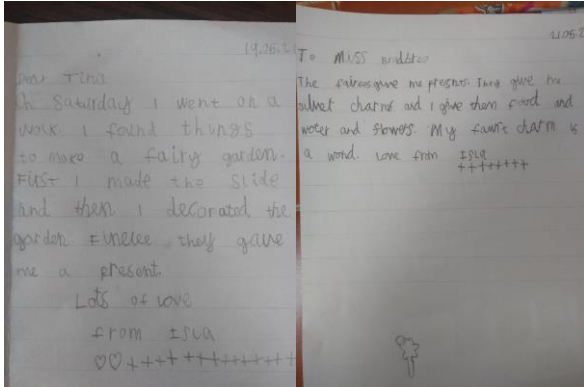 19.05.21
Dear Tina
On Saturday I went on a
walk I found things
to make a fairy garden.
First I made the slide
and then I decorated the
garden Finelee they gave
me a present.
Lots of love
from Isla
♡♡+++++++++++++
21.05.2
To Miss
The faireus give me presnts. They give me
and I give them food and
water and flowers. My charm is
a wond. Love from Isla
++++++++